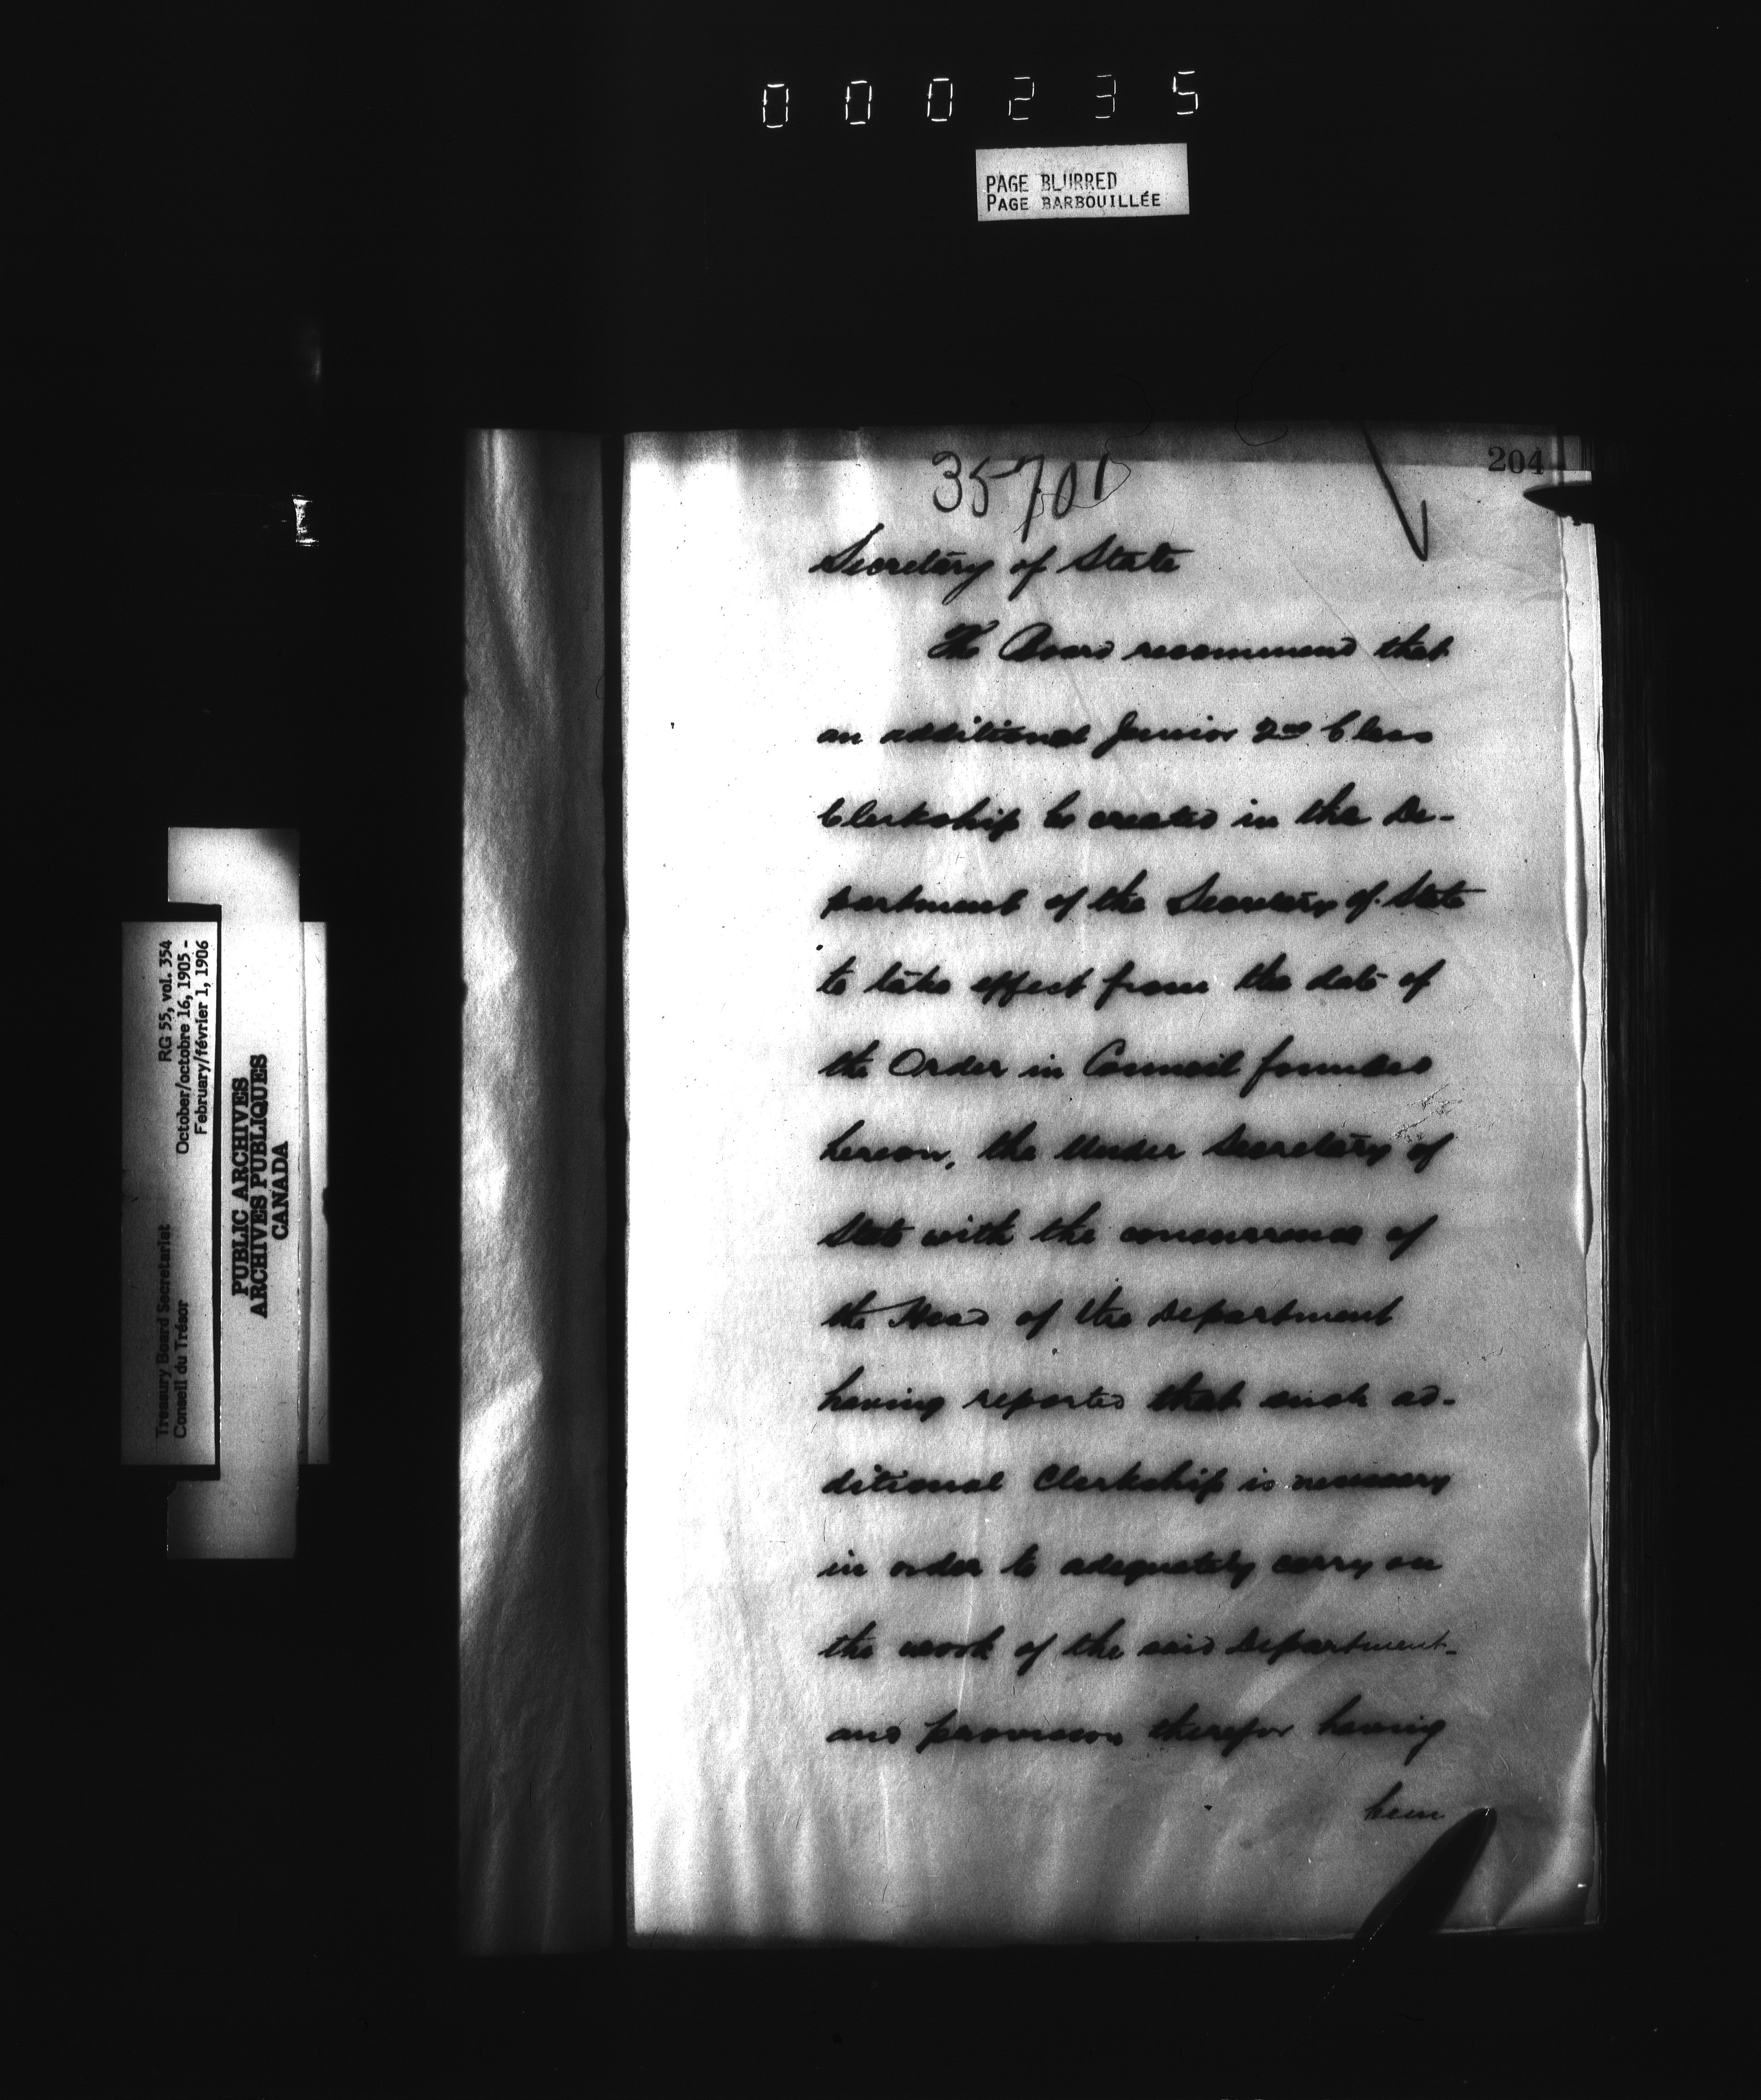 000235
PAGE BLURRED
PAGE BARBOUILLÉE
204
35701
Secretary of State
The Board recommend that
an additional Junior 2nd Class
Clerkship be created in the De-
partment of the Secretary of State
to take effect from the date of
the Order in Council founded
hereon, the Under Secretary of
State with the concurrence of
the Head of the Department
having reported that such ad-
ditional Clerkship is necessary
in order to adequately carry on
the work of the said Department
and provision therefor having
been
Treasury Board Secretariat RG 55, vol. 354
Conseil du Trésor October/octobre 16, 1905 -
February/février 1, 1906
PUBLIC ARCHIVES
ARCHIVES PUBLIQUES
CANADA